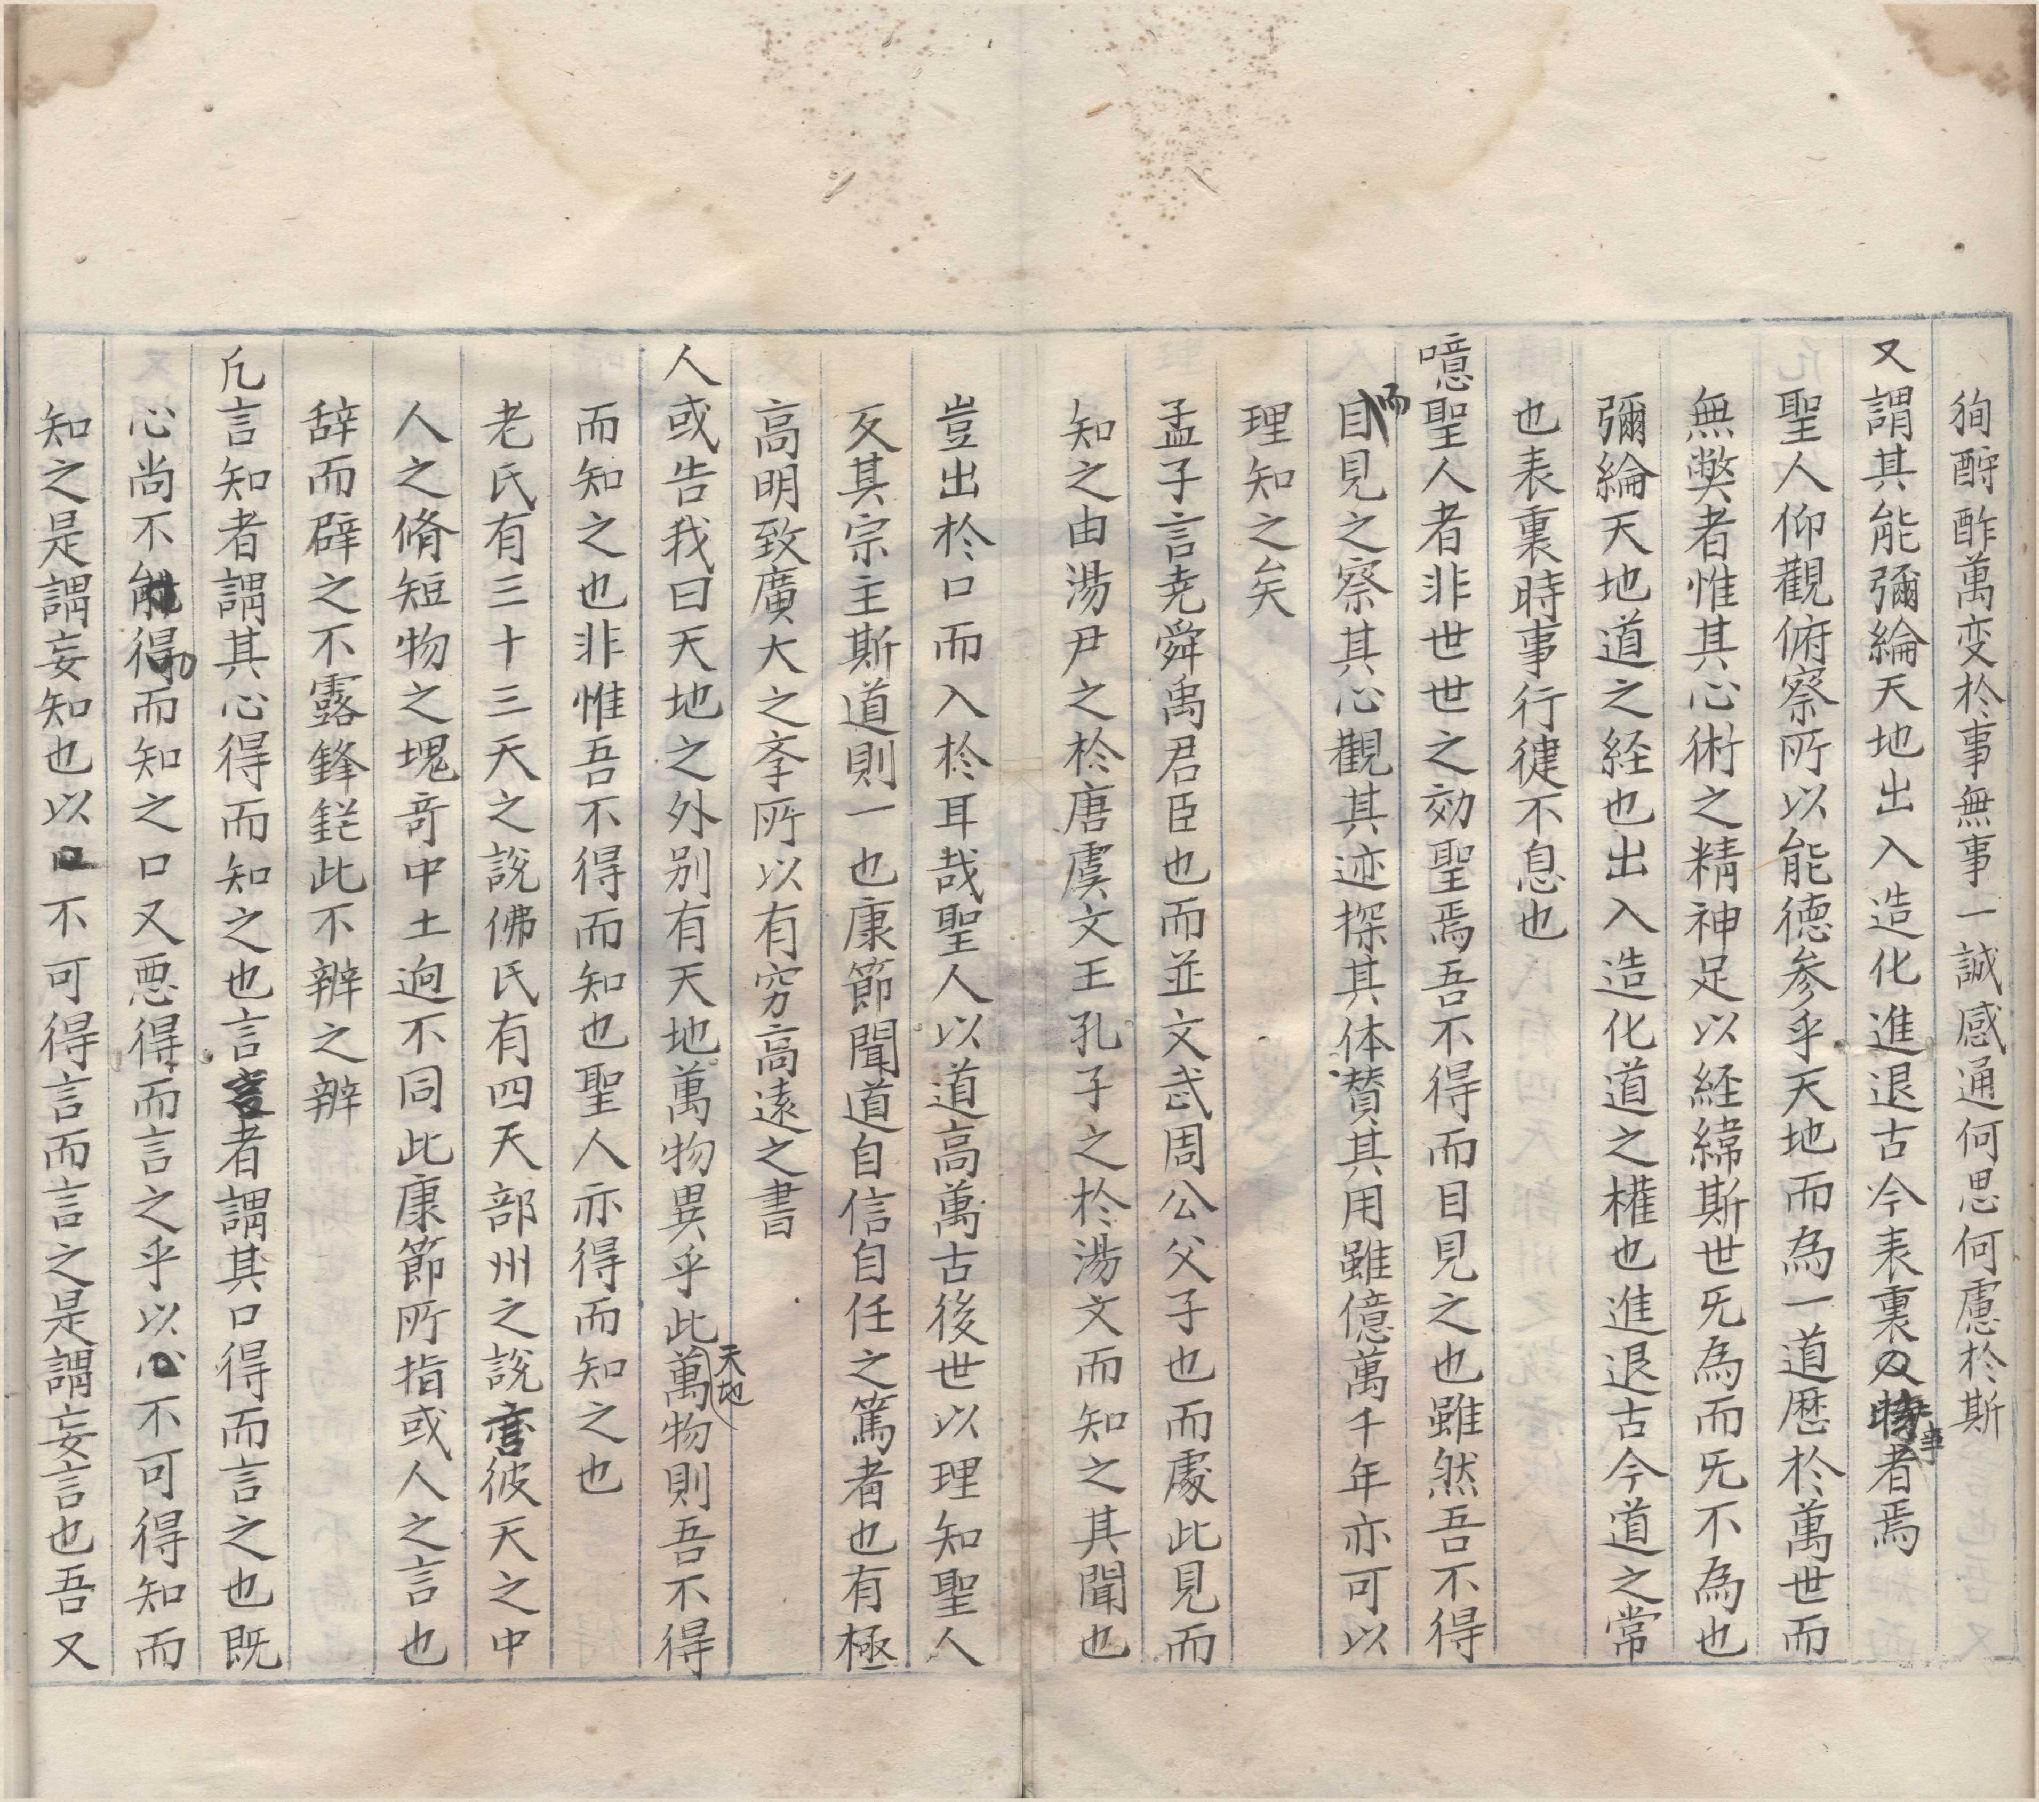 狥酧酢萬变於事無事一誠感通何思何慮於斯
又謂其能彌綸天地出入造化進退古今表裏者焉
聖人仰觀俯察所以能德参乎天地而為一道歷於萬世而
無弊者惟其心術之精神足以経緯斯世旡為而旡不為也
彌綸天地道之経也出入造化道之權也進退古今道之常
也表裏時事行徤不息也
噫聖人者非世世之効聖焉吾不得而目見之也雖然吾不得
而目見之察其心觀其迹探其体賛其用雖億萬千年亦可以
理知之矣
孟子言尭舜禹君臣也而並文武周公父子也而處此見而
知之由湯尹之於唐虞文王孔子之於湯文而知之其聞也
豈出於口而入於耳哉聖人以道高萬古後世以理知聖人
反其宗主斯道則一也康節聞道自信自任之篤者也有極
高明致廣大之斈所以有窮高遠之書
人或告我曰天地之外别有天地萬物異乎此天地萬物則吾不得
而知之也非惟吾不得而知也聖人亦得而知之也
老氏有三十三天之說佛氏有四天部州之說言彼天之中
人之脩短物之塊竒中土逈不同此康節所指或人之言也
辞而辟之不露鋒鋩此不辨之辨
凢言知者謂其心得而知之也言言者謂其口得而言之也既
心尚不得而知之口又惡得而言之乎以心不可得知而
知之是謂妄知也以口不可得言而言之是謂妄言也吾又